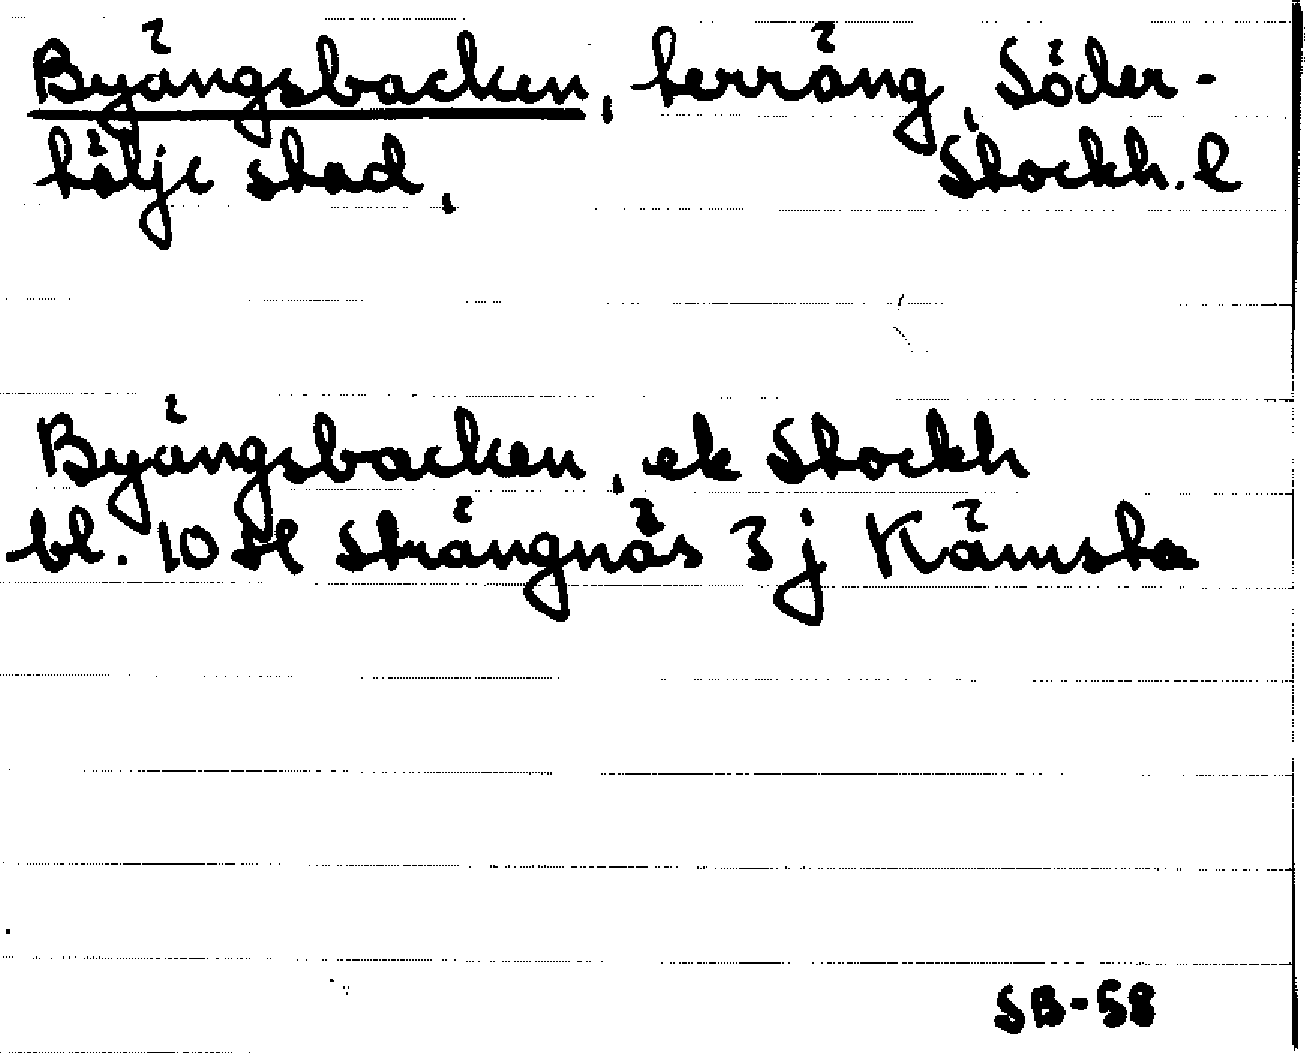 Byängsbacken, terräng, Söder-
tälje stad, Stockh. l
Byängsbacken, ek Stockh
bl. 10 Sl Strängnäs 3 j Kämsta
SB-58